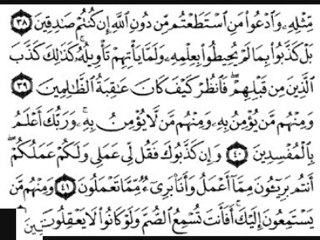 مِّثْلِهِۦ وَٱدْعُوا۟ مَنِ ٱسْتَطَعْتُم مِّن دُونِ ٱللَّهِ إِن كُنتُمْ صَٰدِقِينَ ٣٨
بَلْ كَذَّبُوا۟ بِمَا لَمْ يُحِيطُوا۟ بِعِلْمِهِۦ وَلَمَّا يَأْتِهِمْ تَأْوِيلُهُۥ كَذَٰلِكَ كَذَّبَ
ٱلَّذِينَ مِن قَبْلِهِمْ فَٱنظُرْ كَيْفَ كَانَ عَٰقِبَةُ ٱلظَّٰلِمِينَ ٣٩
وَمِنْهُم مَّن يُؤْمِنُ بِهِۦ وَمِنْهُم مَّن لَّا يُؤْمِنُ بِهِۦ وَرَبُّكَ أَعْلَمُ
بِٱلْمُفْسِدِينَ ٤٠ وَإِن كَذَّبُوكَ فَقُل لِّى عَمَلِى وَلَكُمْ عَمَلُكُمْ
أَنتُم بَرِيٓـُٔونَ مِمَّآ أَعْمَلُ وَأَنَا۠ بَرِىٓءٌ مِّمَّا تَعْمَلُونَ ٤١ وَمِنْهُم مَّن
يَسْتَمِعُونَ إِلَيْكَ أَفَأَنتَ تُسْمِعُ ٱلصُّمَّ وَلَوْ كَانُوا۟ لَا يَعْقِلُونَ